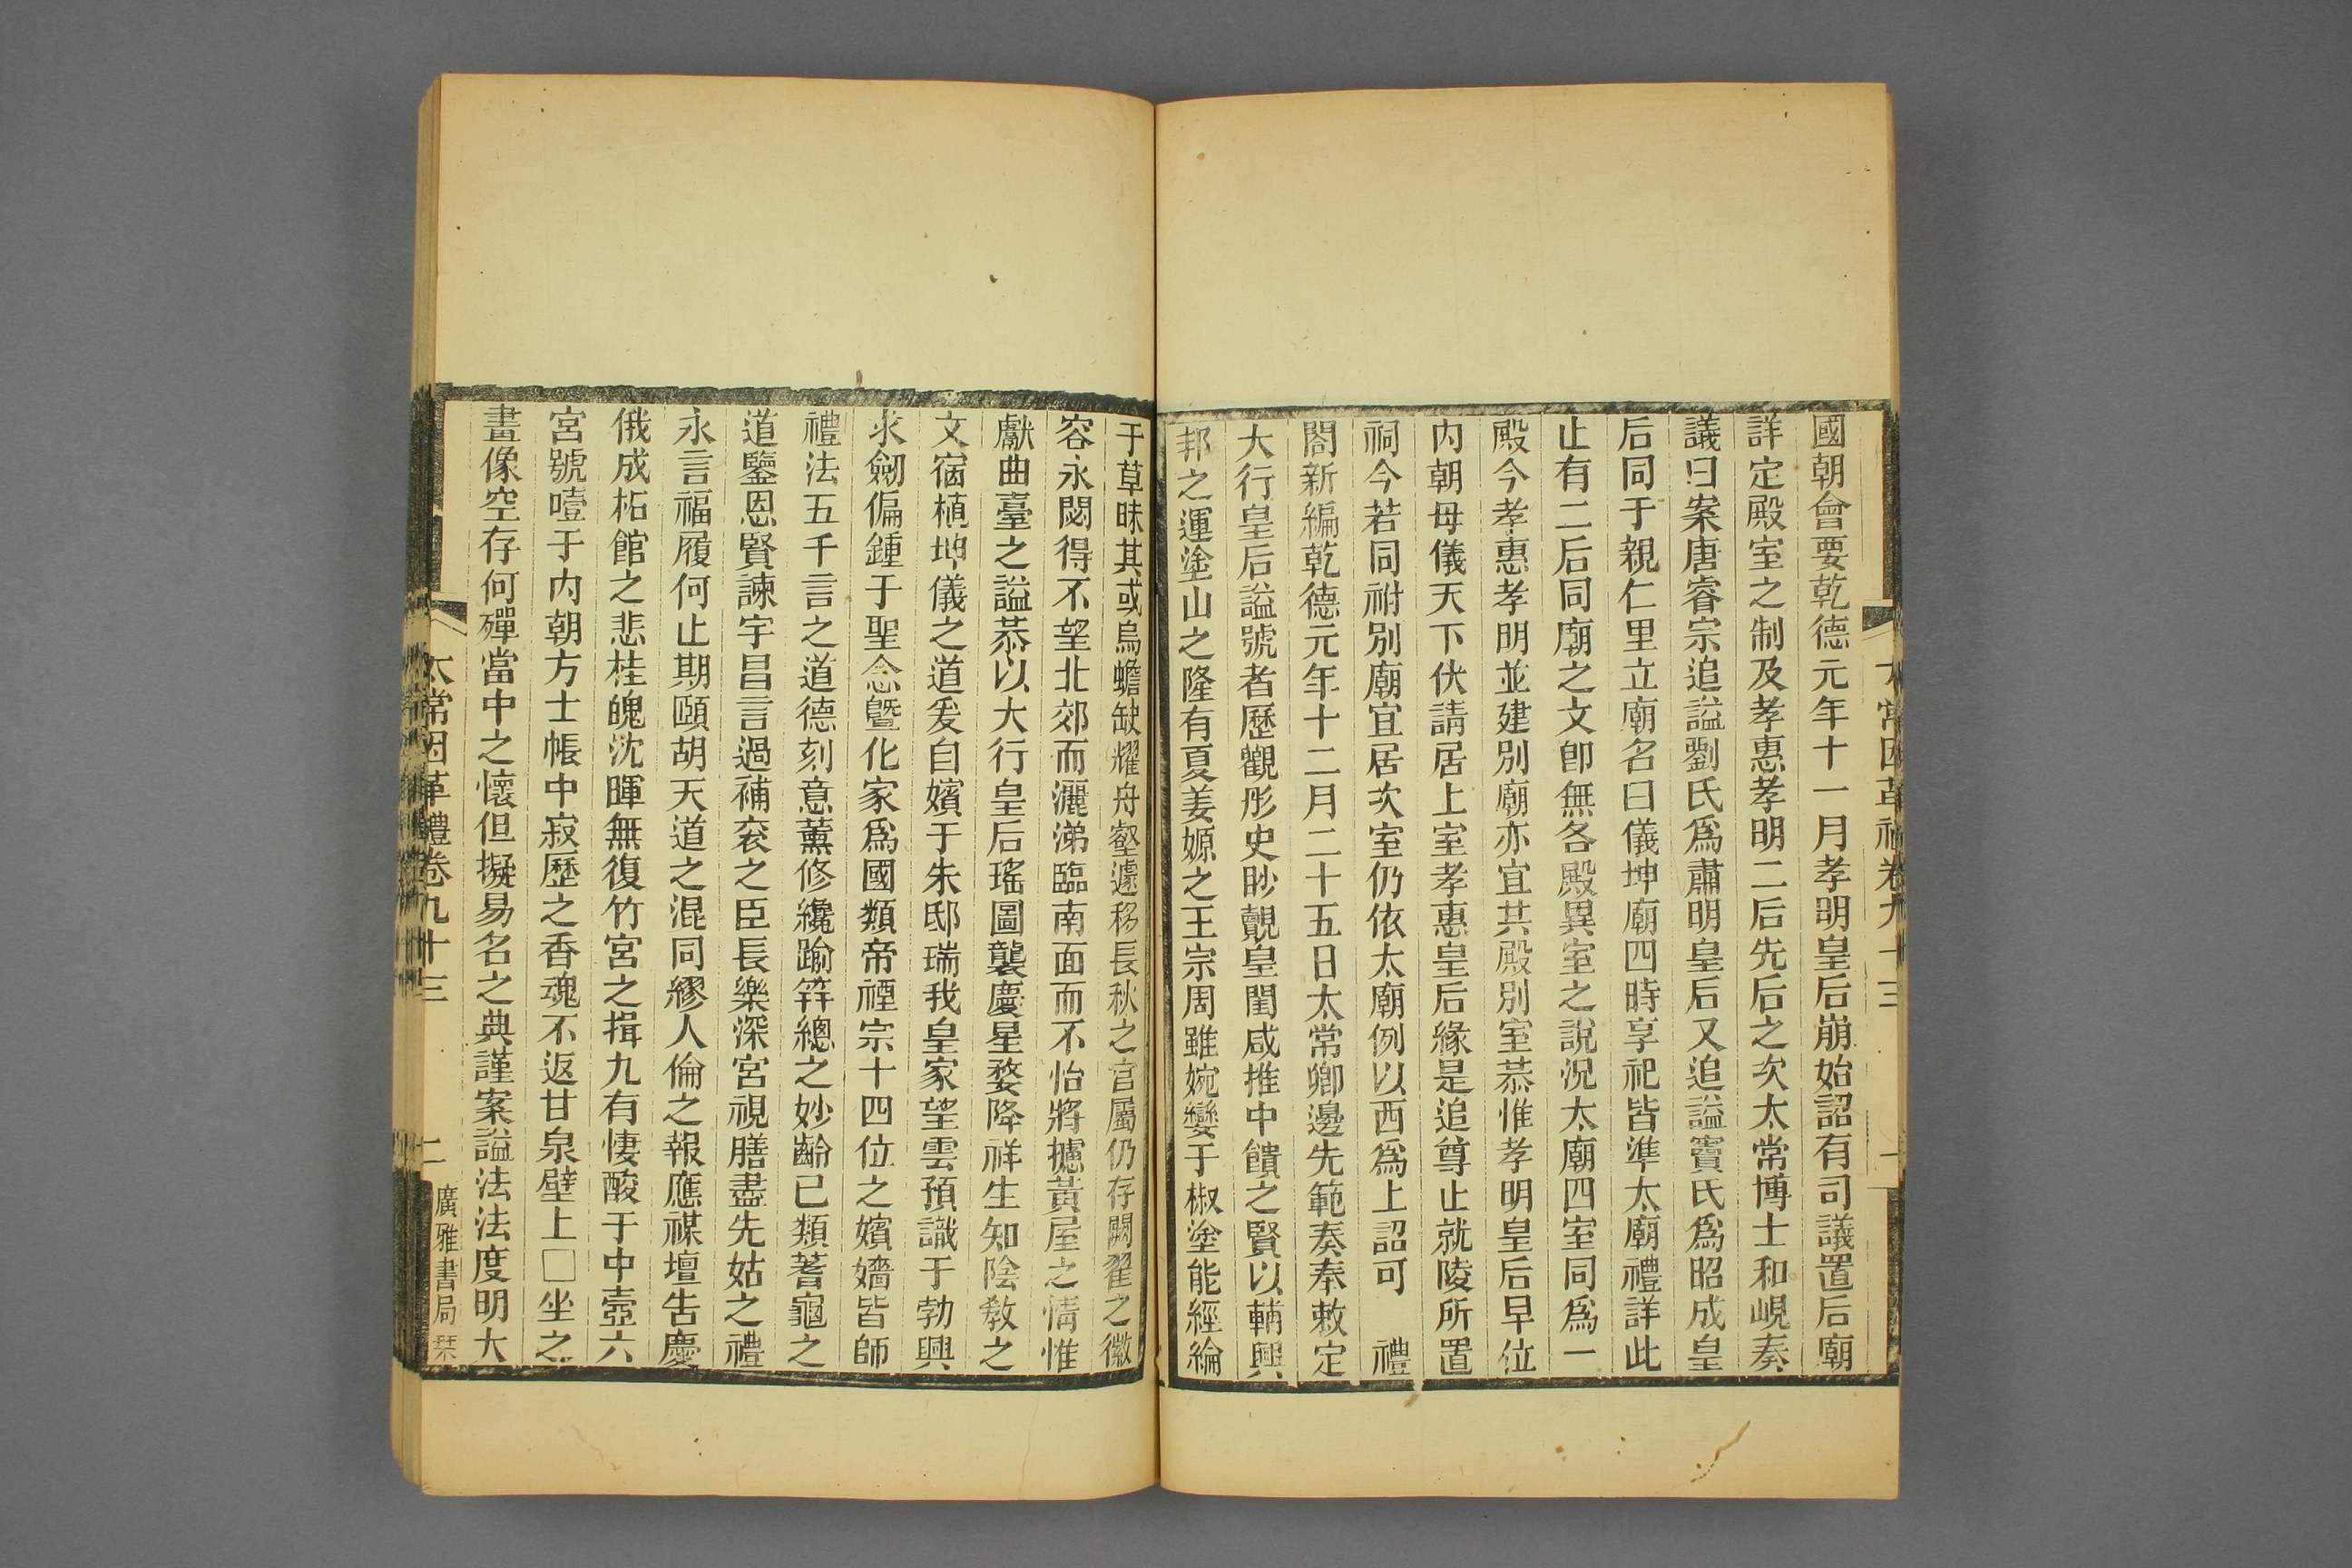 國朝會要乾德元年十一月孝明皇后崩始詔有司議置后廟
詳定殿室之制及孝惠孝明二后先后之次太常博士和峴奏
議曰案唐睿宗追謚劉氏爲肅明皇后又追謚竇氏爲昭成皇
后同于親仁里立廟名曰儀坤廟四時享祀皆準太廟禮詳此
止有二后同廟之文卽無各殿異室之說況太廟四室同爲一
殿今孝惠孝明並建別廟亦宜共殿別室恭惟孝明皇后早位
內朝母儀天下伏請居上室孝惠皇后緣是追尊止就陵所置
祠今若同祔別廟宜居次室仍依太廟例以西爲上詔可　禮
閤新編乾德元年十二月二十五日太常卿邊先範奏奉敕定
大行皇后謚號者歷觀彤史眇覿皇閨咸推中饋之賢以輔興
邦之運塗山之隆有夏姜嫄之王宗周雖婉孌于椒塗能經綸
于草昧其或烏蟾缺耀舟壑遽移長秋之官屬仍存闕翟之徽
容永閟得不望北郊而灑涕臨南面而不怡將攄黃屋之情惟
獻曲臺之謚恭以大行皇后瑤圖襲慶星婺降祥生知陰敎之
文宿植坤儀之道爰自嬪于朱邸瑞我皇家望雲預識于勃興
求劒偏鍾于聖念曁化家爲國類帝禋宗十四位之嬪嬙皆師
禮法五千言之道德刻意薰修纔踰笄總之妙齡已類蓍龜之
道鑒恩賢諫宇昌言過補衮之臣長樂深宮視膳盡先姑之禮
永言福履何止期頤胡天道之混同繆人倫之報應禖壇吿慶
俄成柘館之悲桂魄沈暉無復竹宮之揖九有悽酸于中壼六
宮號噎于內朝方士帳中寂歷之香魂不返甘泉壁上□坐之
畫像空存何殫當中之懷但擬易名之典謹案謚法法度明大
太常因革禮卷九十三　二
廣雅書局栞